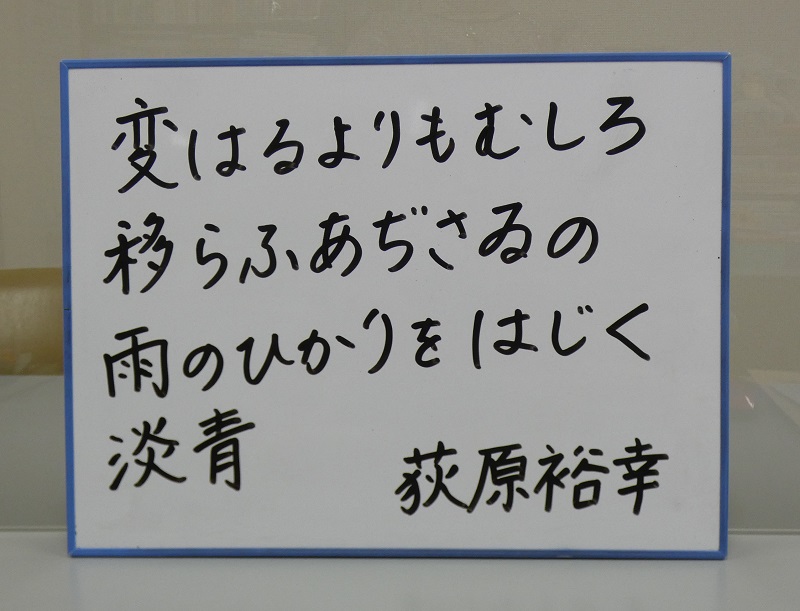 変はるよりもむしろ
移らふあぢさゐの
雨のひかりをはじく
淡青
荻原裕幸